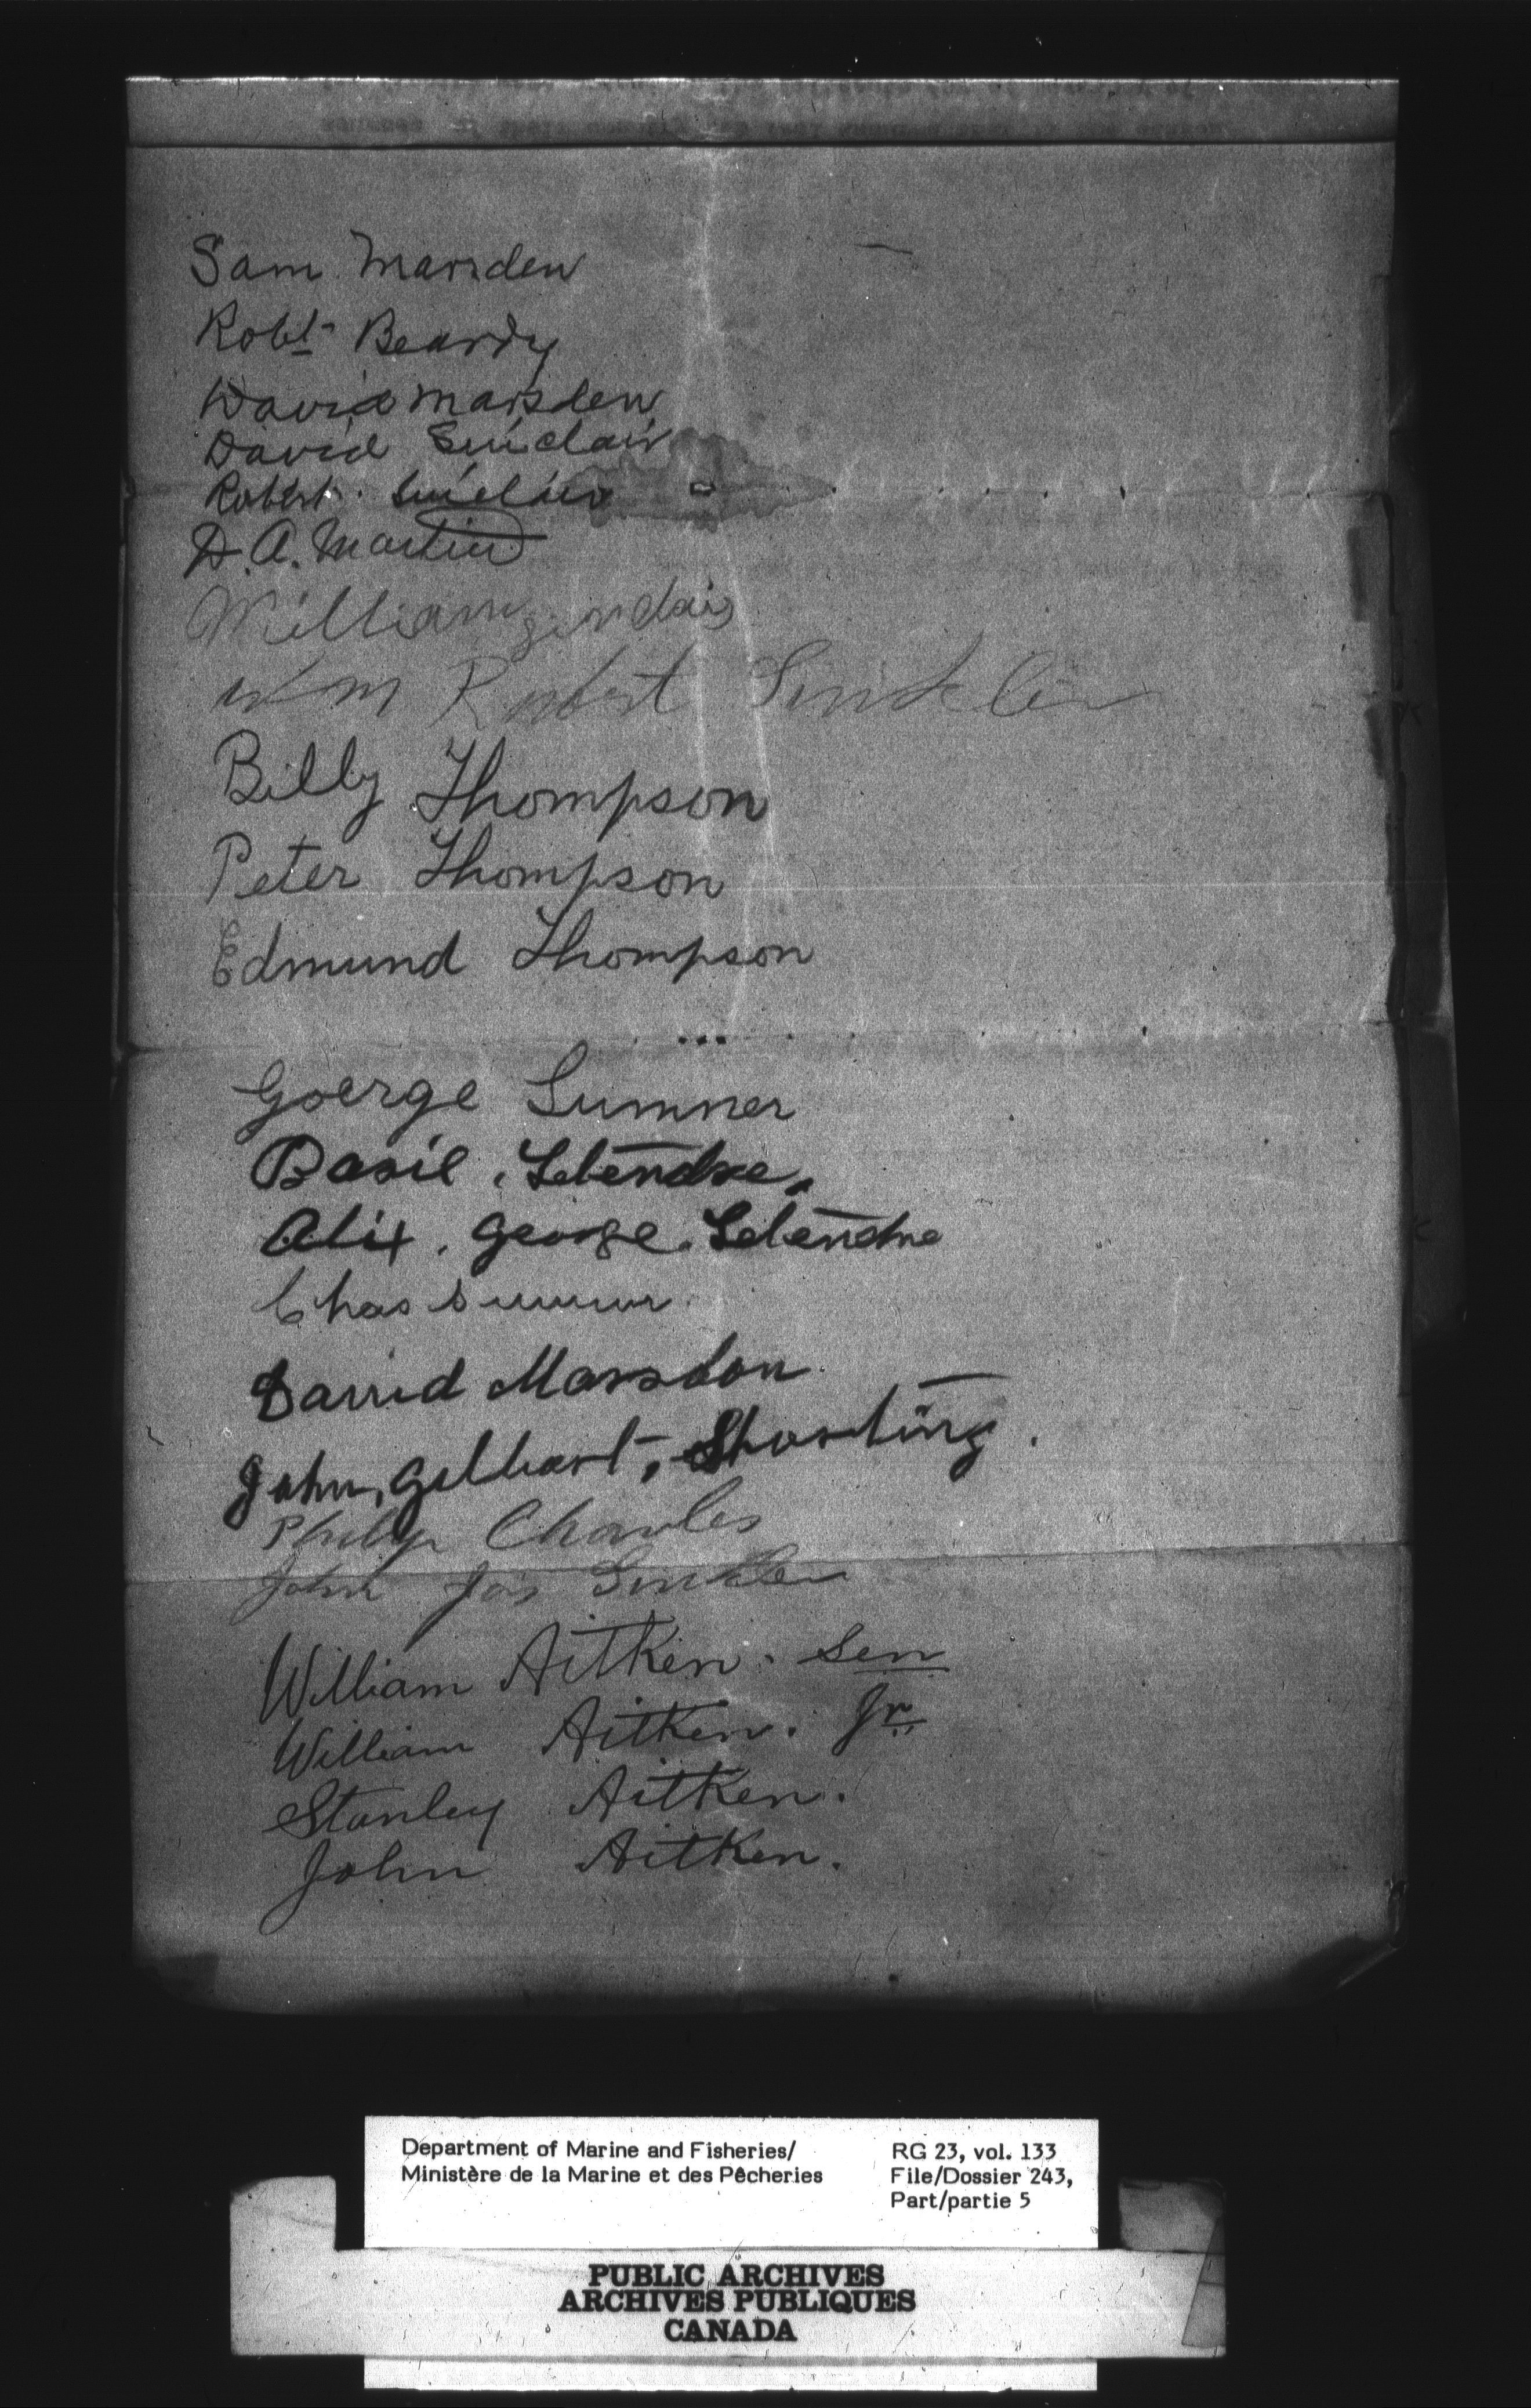 Sam Marsden
Robt Beardy
David Marsden
David Sinclair
Robert Sinclair
D. A. Martin
William Sinclair
Wm Robert Sinkler
Billy Thompson
Peter Thompson
Edmund Thompson
Goerge Sumner
Basil. Letendre.
Alix. George. Letendre
Chas Sumner
David Marsdon
John, Gilbart, Shorting.
Philip Charles
John Jas
William Aitken. Sen
William Aitken. Jr.
Stanley Aitken.
John Aitken.
Department of Marine and Fisheries/
Ministère de la Marine et des Pêcheries
RG 23, vol. 133
File/Dossier 243,
Part/partie 5
PUBLIC ARCHIVES
ARCHIVES PUBLIQUES
CANADA